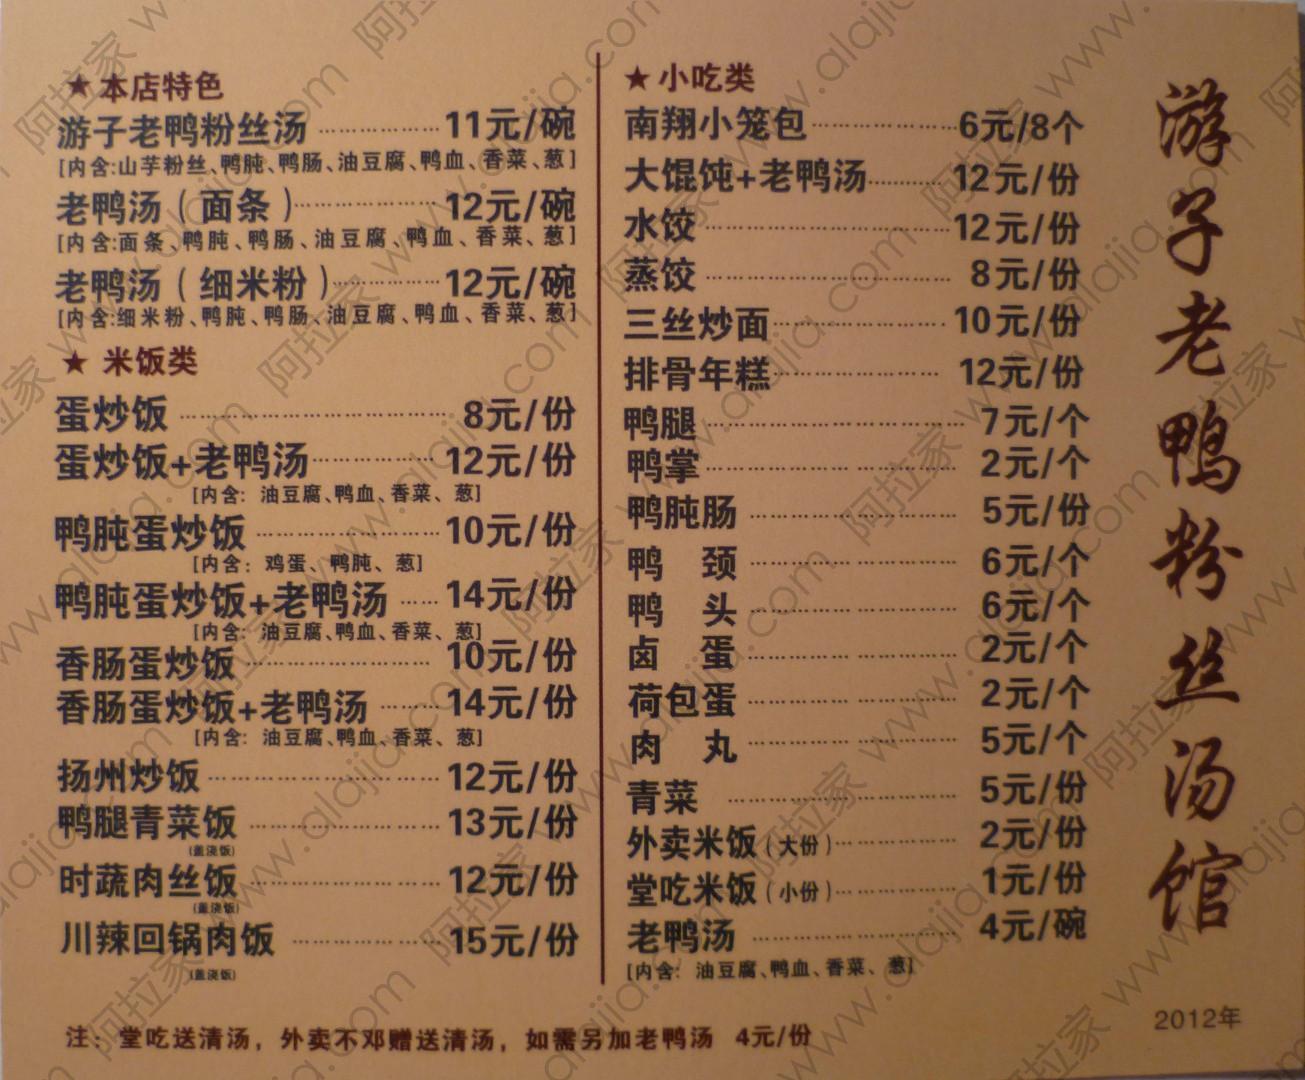 ★ 本店特色
游子老鸭粉丝汤 11元/碗
[内含:山芋粉丝、鸭肫、鸭肠、油豆腐、鸭血、香菜、葱]
老鸭汤（面条） 12元/碗
[内含:面条、鸭肫、鸭肠、油豆腐、鸭血、香菜、葱]
老鸭汤（细米粉） 12元/碗
[内含:细米粉、鸭肫、鸭肠、油豆腐、鸭血、香菜、葱]
★ 米饭类
蛋炒饭 8元/份
蛋炒饭+老鸭汤 12元/份
[内含：油豆腐、鸭血、香菜、葱]
鸭肫蛋炒饭 10元/份
[内含：鸡蛋、鸭肫、葱]
鸭肫蛋炒饭+老鸭汤 14元/份
[内含：油豆腐、鸭血、香菜、葱]
香肠蛋炒饭 10元/份
香肠蛋炒饭+老鸭汤 14元/份
[内含：油豆腐、鸭血、香菜、葱]
扬州炒饭 12元/份
鸭腿青菜饭 13元/份
(盖浇饭)
时蔬肉丝饭 12元/份
(盖浇饭)
川辣回锅肉饭 15元/份
(盖浇饭)
★ 小吃类
南翔小笼包 6元/8个
大馄饨+老鸭汤 12元/份
水饺 12元/份
蒸饺 8元/份
三丝炒面 10元/份
排骨年糕 12元/份
鸭腿 7元/个
鸭掌 2元/个
鸭肫肠 5元/份
鸭 颈 6元/个
鸭 头 6元/个
卤 蛋 2元/个
荷包蛋 2元/个
肉 丸 5元/个
青菜 5元/份
外卖米饭（大份） 2元/份
堂吃米饭（小份） 1元/份
老鸭汤 4元/碗
[内含：油豆腐、鸭血、香菜、葱]
游子老鸭粉丝汤馆
2012年
注：堂吃送清汤，外卖不邓赠送清汤，如需另加老鸭汤 4元/份
阿拉家 www.alajia.com